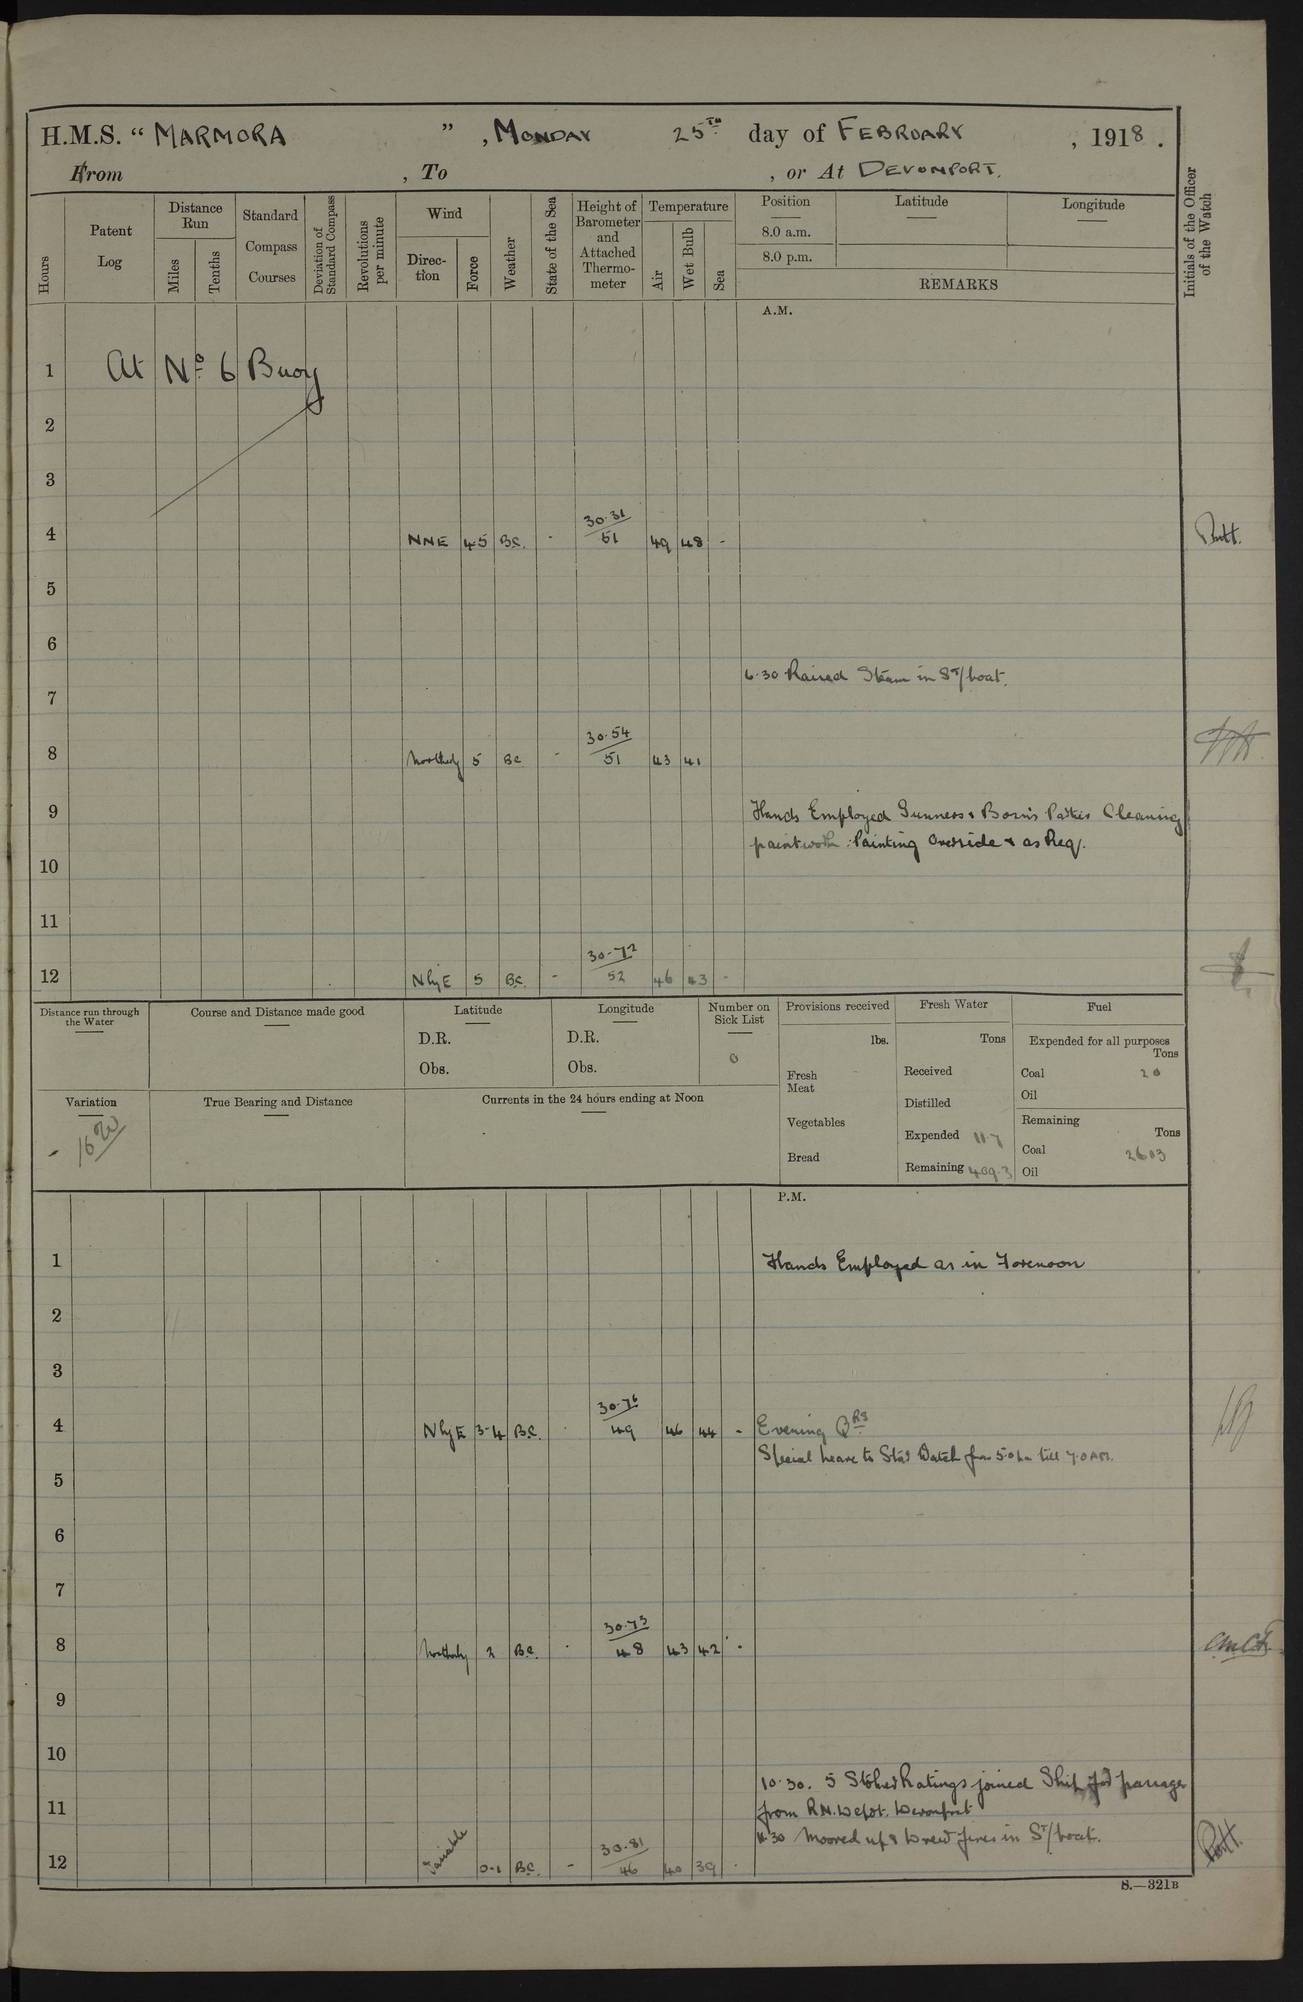 H.M.S. " MARMORA " , MONDAY 25TH day of FEBRUARY , 1918 .
From , To , or At DEVONPORT.
Hours
Patent Log
Distance Run
Miles
Tenths
Standard Compass Courses
Deviation of Standard Compass
Revolutions per minute
Wind
Direction
Force
Weather
State of the Sea
Height of Barometer and Attached Thermometer
Temperature
Air
Wet Bulb
Sea
Position
8.0 a.m.
8.0 p.m.
Latitude
Longitude
REMARKS
Initials of the Officer of the Watch
A.M.
1 At No 6 Buoy
2
3
4 NNE 4-5 B.C. - 30.31 / 51 49 48 -
5
6
6.30 Raised Steam in ST/boat.
7
8 Northerly 5 BC - 30.54 / 51 43 41
9 Hands Employed Gunners & Bosns Parties Cleaning
paintwork. Painting Overside & as Req.
10
11
12 N by E 5 B.C. - 30.72 / 52 46 43 -
Distance run through the Water
Course and Distance made good
Latitude
D.R.
Obs.
Longitude
D.R.
Obs.
Number on Sick List
0
Provisions received
lbs.
Fresh Meat
Vegetables
Bread
Fresh Water
Tons
Received
Distilled
Expended 11.7
Remaining 409.3
Fuel
Expended for all purposes
Tons
Coal 20
Oil
Remaining
Tons
Coal 2603
Oil
Variation
16 W
True Bearing and Distance
Currents in the 24 hours ending at Noon
P.M.
1 Hands Employed as in Forenoon
2
3
4 N by E 3-4 B.C. 30.76 / 49 46 44 - Evening QRS
Special Leave to Stbd Watch from 5.0 pm till 7.0 AM.
5
6
7
8 Northerly 2 B.C. 30.73 / 48 43 42 -
9
10
10.30. 5 Stoker Ratings joined Ship for passage
11 from R.N. Depot. Devonport
11.30 Moored up & Drew fires in ST/boat.
12 Variable 0-1 B.C. - 30.81 / 46 40 39
S.—321B